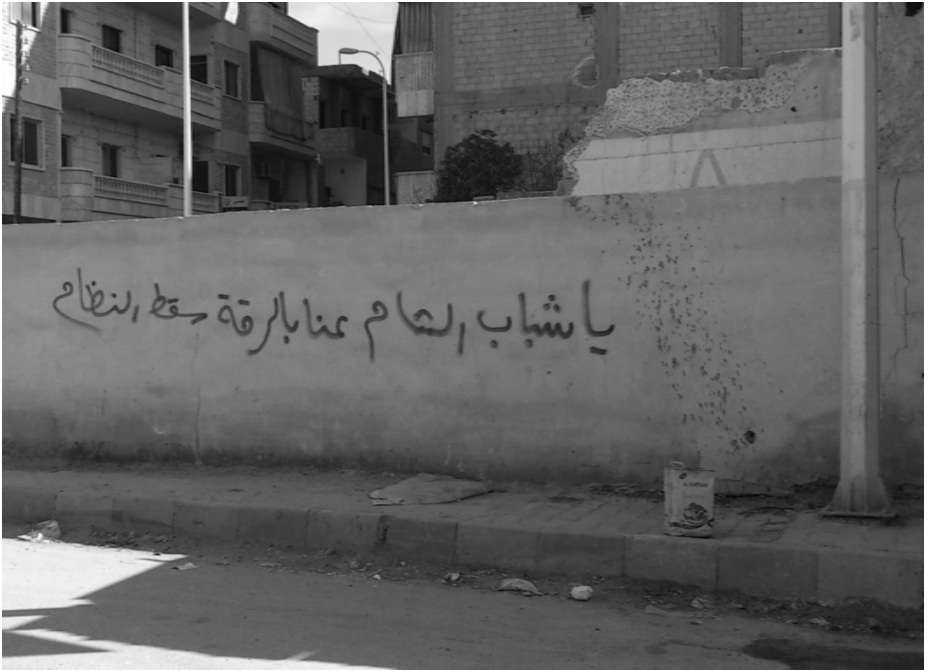 يا شباب الشام عنا بالرقة سقط النظام